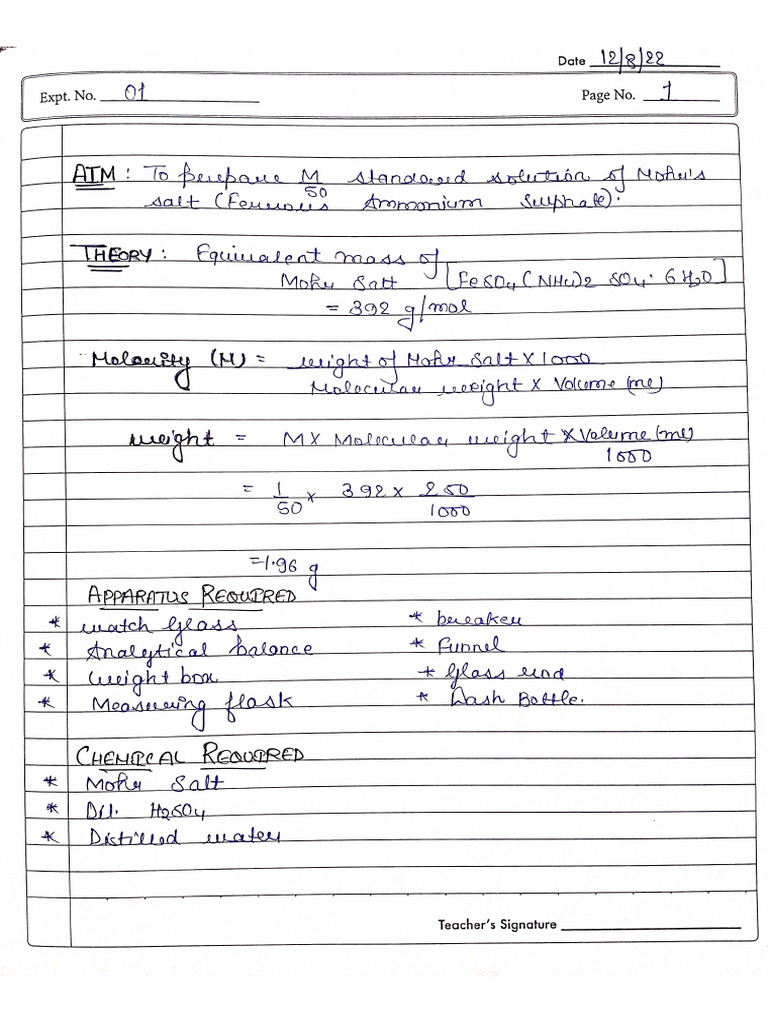 Date 12/8/22
Expt. No. 01 Page No. 1
AIM : To prepare M/50 standared solution of Mohr's
salt (Ferrous Ammonium Sulphate).
THEORY : Equivalent mass of
Mohr Salt [FeSO4(NH4)2 SO4. 6H2O]
= 392 g/mol
Molarity (M) = weight of Mohr Salt X 1000
Molecular weight X Volume (ml)
weight = M X Molecular weight X Volume (ml)
1000
= 1 x 392 x 250
50 1000
=1.96 g
APPARATUS REQUIRED
* watch glass * breaker
* Analytical balance * Funnel
* weight box * Glass rod
* Measuring flask * Wash Bottle.
CHEMICAL REQUIRED
* Mohr Salt
* Dil. H2SO4
* Distilled water
Teacher's Signature